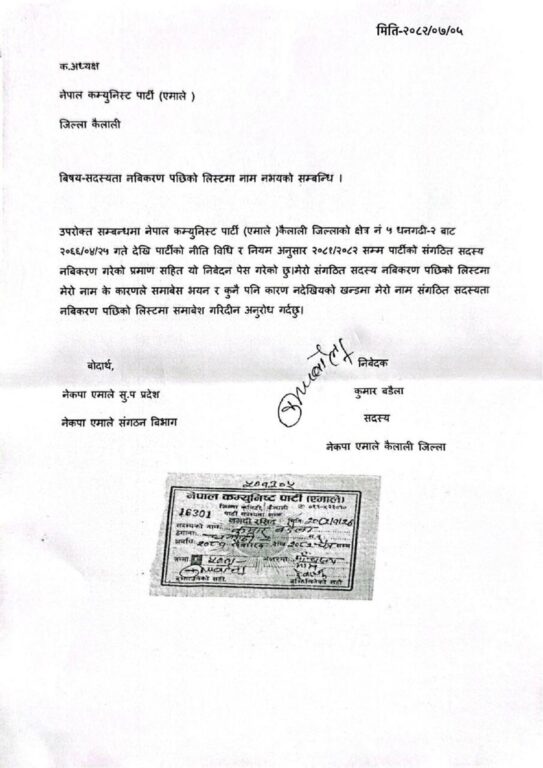 मिति-२०८२/०७/०५
क.अध्यक्ष
नेपाल कम्युनिस्ट पार्टी (एमाले )
जिल्ला कैलाली
बिषय-सदस्यता नबिकरण पछिको लिस्टमा नाम नभयको सम्बन्धि ।
उपरोक्त सम्बन्धमा नेपाल कम्युनिस्ट पार्टी (एमाले )कैलाली जिल्लाको क्षेत्र नं ५ धनगढी-२ बाट
२०६६/०४/२५ गते देखि पार्टीको नीति विधि र नियम अनुसार २०८१/२०८२ सम्म पार्टीको संगठित सदस्य
नबिकरण गरेको प्रमाण सहित यो निबेदन पेस गरेको छु।मेरो संगठित सदस्य नबिकरण पछिको लिस्टमा
मेरो नाम के कारणले समाबेस भयन र कुनै पनि कारण नदेखियको खन्डमा मेरो नाम संगठित सदस्यता
नबिकरण पछिको लिस्टमा समाबेश गरिदीन अनुरोध गर्दछु।
बोदार्थ,
नेकपा एमाले सु.प प्रदेश
नेकपा एमाले संगठन बिभाग
निबेदक
कुमार बडैला
सदस्य
नेकपा एमाले कैलाली जिल्ला
नेपाल कम्युनिष्ट पार्टी (एमाले)
16301